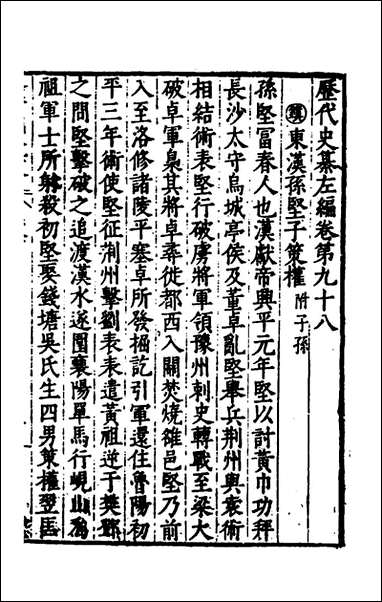 歷代史纂左編卷第九十八
鎮東漢孫堅子策權附子孫
孫堅冨春人也漢獻帝興平元年堅以討黃巾功拜
長沙太守烏城亭侯及董卓亂堅舉兵荆州與袁術
相結術表堅行破虜將軍領豫州刺史轉戰至梁大
破卓軍梟其將卓尋徙都西入關焚燒雒邑堅乃前
入至洛修諸陵平塞卓所發掘訖引軍還住魯陽初
平三年術使堅征荆州擊劉表表遣黃祖逆于樊鄧
之間堅擊破之追渡漢水遂圍襄陽單馬行峴山爲
祖軍士所射殺初堅娶錢塘吳氏生四男策權翊匡